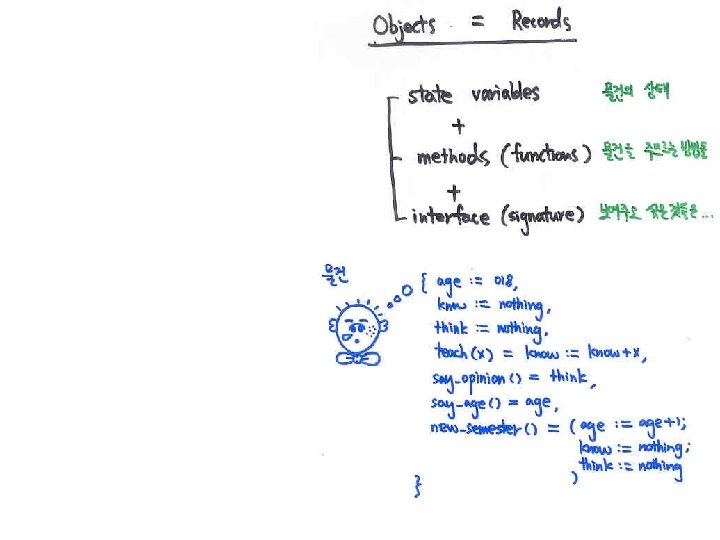 Objects = Records
state variables 물건의 상태
+
methods (functions) 물건을 주므르는 방법들
+
interface (signature) 보여주고 싶은 것들은...
물건
{ age := 018,
know := nothing,
think := nothing,
teach(x) = know := know+x,
say-opinion() = think,
say-age() = age,
new-semester() = (age := age+1;
know := nothing;
think := nothing
)
}